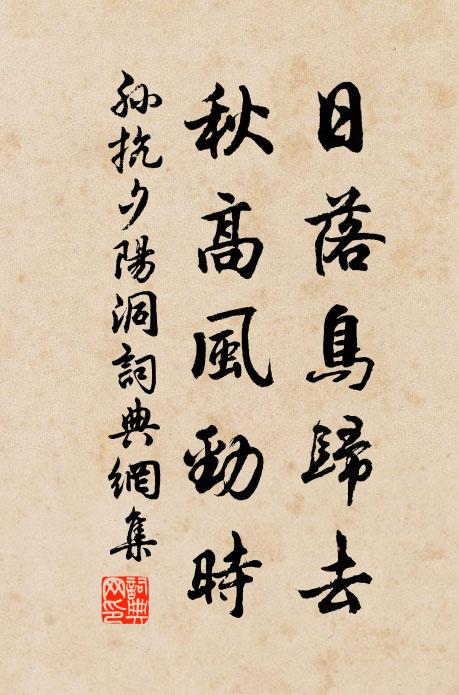 日落鳥歸去
秋高風勁時
孫抗夕陽洞詞典網集
詞典